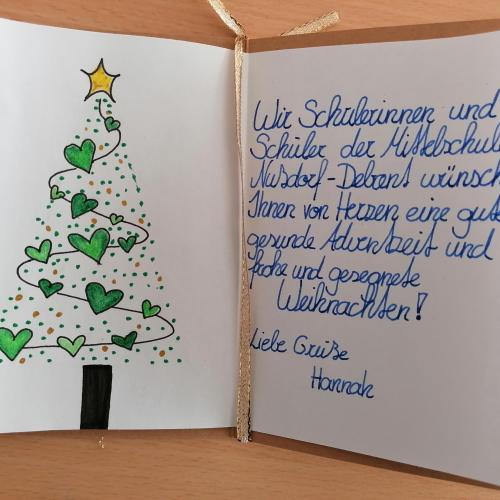 Wir Schülerinnen und
Schüler der Mittelschule
Nußdorf-Debant wünsch
Ihnen von Herzen eine gute
gesunde Adventzeit und
frohe und gesegnete
Weihnachten!
Liebe Grüße
Hannah